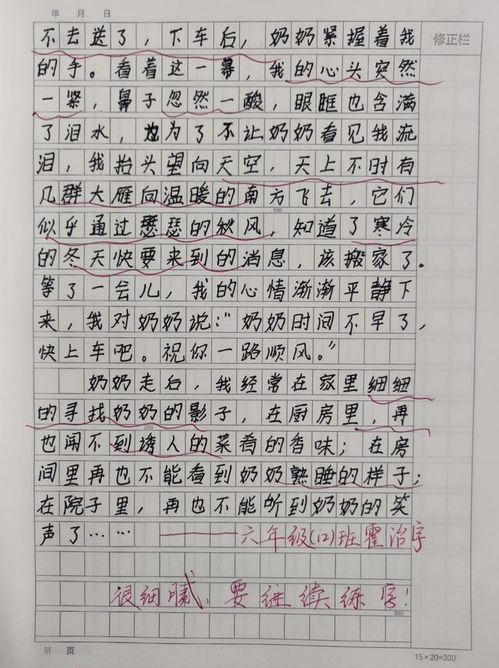 年 月 日
修正栏
不去送了，下车后，奶奶紧握着我
的手。看着这一幕，我的心头突然
一紧，鼻子忽然一酸，眼眶也含满
了泪水，也为了不让奶奶看见我流
泪，我抬头望向天空，天上不时有
几群大雁向温暖的南方飞去，它们
100
似乎通过瑟瑟的秋风，知道了寒冷
的冬天快要来到的消息，该搬家了。
等了一会儿，我的心情渐渐平静下
来，我对奶奶说：“奶奶时间不早了，
快上车吧。祝你一路顺风。”
奶奶走后，我经常在家里细细
的寻找奶奶的影子，在厨房里，再
200
也闻不到诱人的菜肴的香味；在房
间里再也不能看到奶奶熟睡的样子；
在院子里，再也不能听到奶奶的笑
声了……——六年级(12)班霍治宇
很细腻，要继续练字！
300
第 页
15×20=300